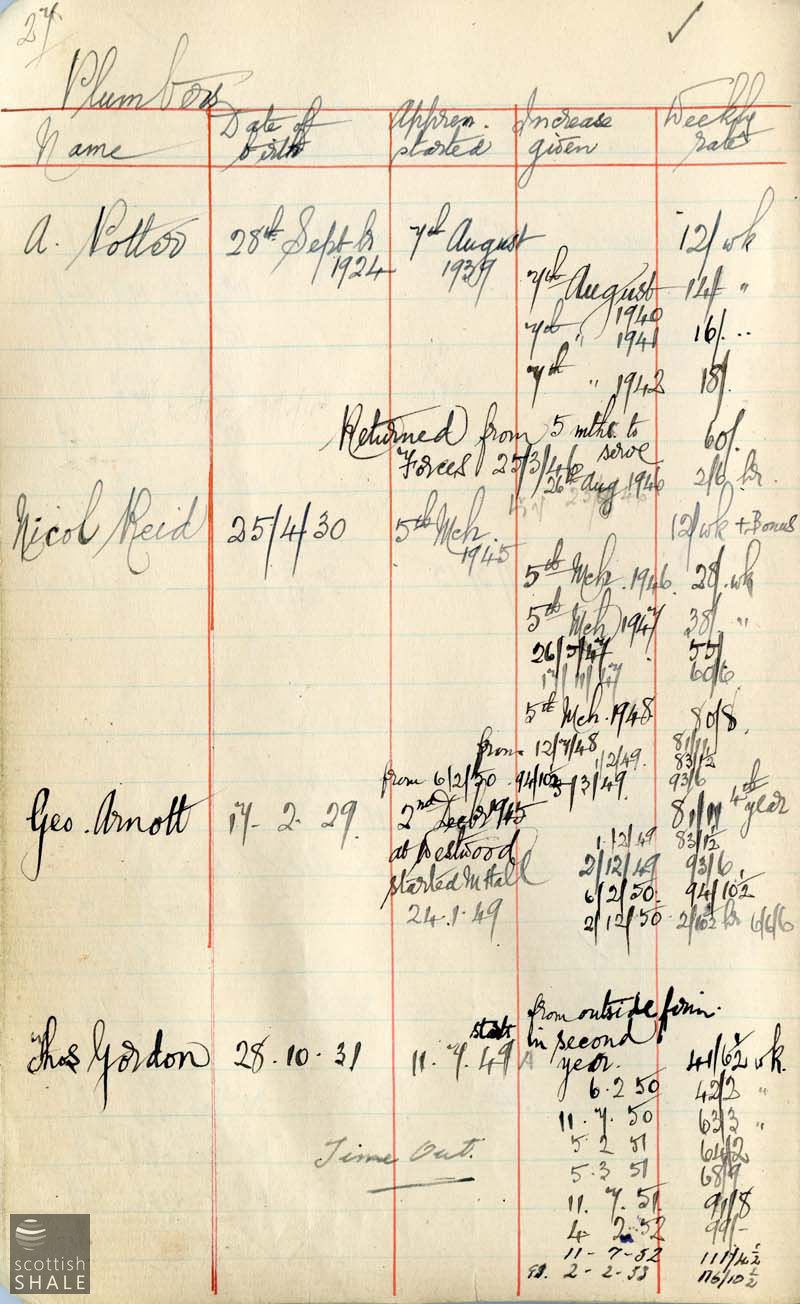 27
Plumbers
Name Date of birth Appren. started Increase given Weekly rate
A. Potter 28th Septbr 1924 7th August 1939 12/ wk
7th August 1940 14/ "
7th " 1941 16/. "
7th " 1942 18/.
Returned from Forces 25/3/46 5 mths. to serve 60/.
26th Aug 1946 2/6 hr.
Nicol Reid 25/4/30 5th Mch. 1945 12/ wk + Bonus
5th Mch. 1946. 28/. wk
5th Mch 1947 38/ "
26/5/47 55/
17/11/47 60/6
5th Mch. 1948 80/8.
from 12/7/48 81/11
1/2/49. 83/1½
5/3/49. 93/6
from 6/2/50 94/10½
Geo. Arnott 17. 2. 29. 2nd Decbr 1945 81/11 4th year
at Westwood 1.12/49 83/1½
started M Hall 2/12/49 93/6.
24.1.49 6/2/50. 94/10½
2/12/50. 2/10½ hr 6/6/6
Thos Gordon 28.10.31 start 11.7.49 from outside firm.
in second year. 41/6½ wk.
6.2 50 42/2 "
11.7.50 63/3 "
Time Out.
5.2 51 64/2
5.3 51 68/9
11.7.51 91/8
4 2.52 99/-
11-7-52 111/4½
2-2-53 /10½
scottish
SHALE